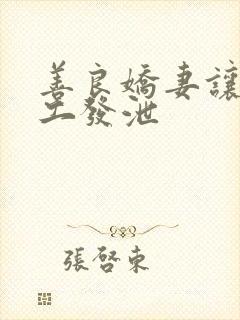 善良嬌妻讓
工發泄
張啓東